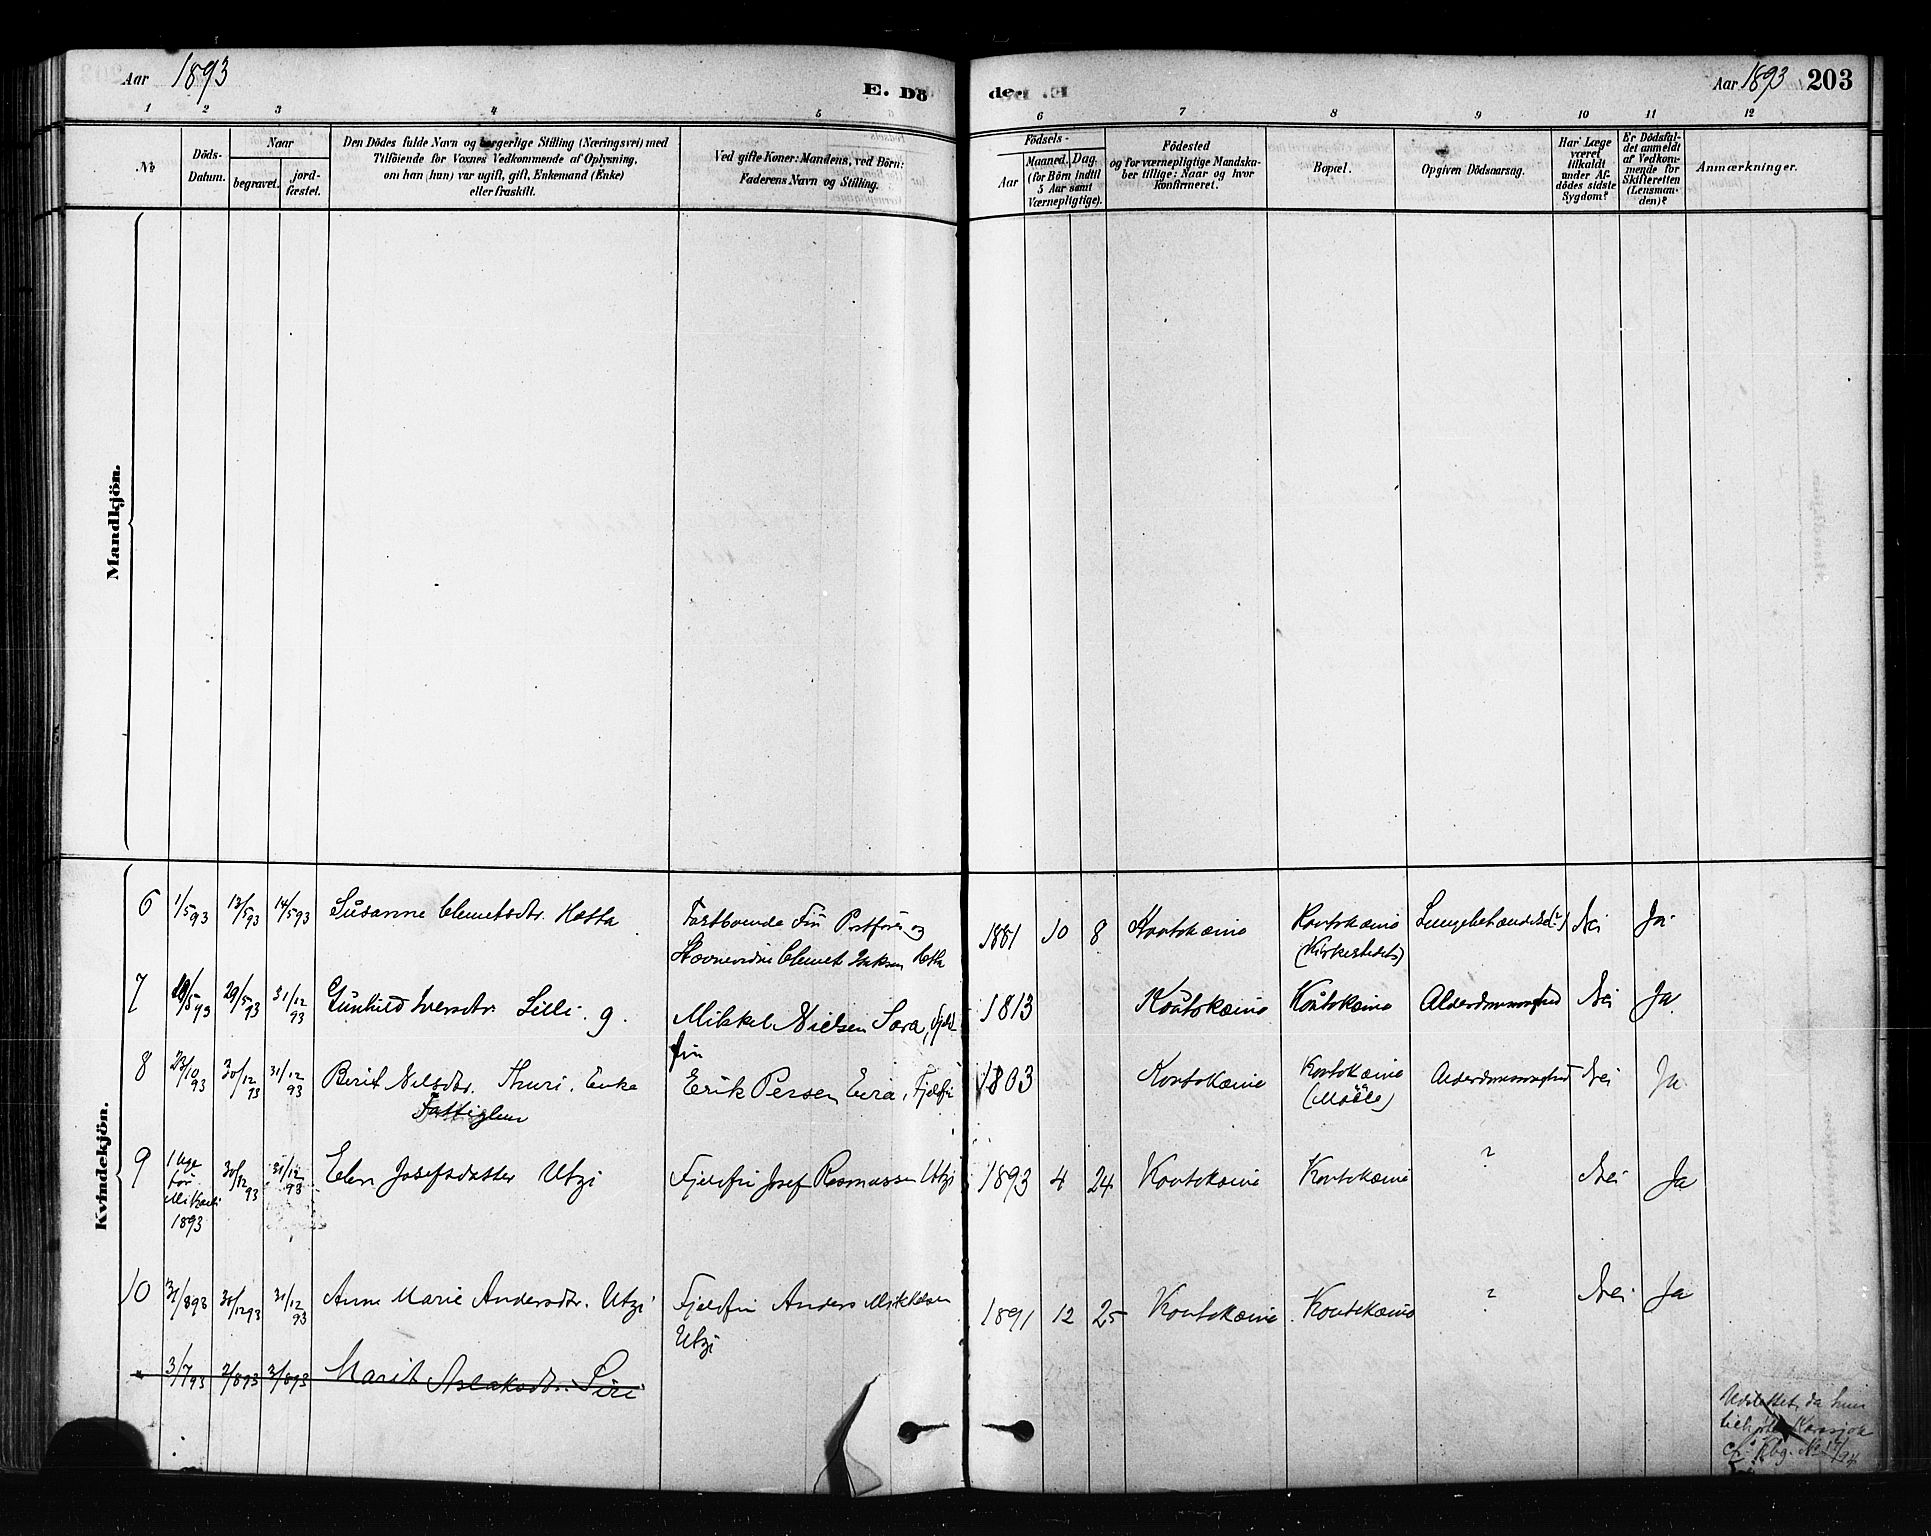 Aar 1893
E. Dö
der
Aar 1893 203
1 2 3 4 5 6 7 8 9 10 11 12
№
Döds-
Datum.
Naar
begravet.
jord-
fæstet.
Den Dödes fulde Navn og borgerlige Stilling (Næringsvei) med
Tilföiende for Voxnes Vedkommende af Oplysning,
om han (hun) var ugift, gift, Enkemand (Enke)
eller fraskilt.
Ved gifte Koner: Mandens, ved Börn:
Faderens Navn og Stilling.
Födsels-
Aar
Maaned. Dag.
(for Börn indtil
5 Aar samt
Værnepligtige).
Födested
og for værnepligtige Mandska-
ber tillige: Naar og hvor
konfirmeret.
Bopæl.
Opgiven Dödsaarsag.
Har Læge
været
tilkaldt
under Af-
dödes sidste
Sygdom?
Er Dödsfal-
det anmeldt
af Vedkom-
mende for
Skifteretten
(Lensman-
den)?
Anmærkninger.
Mandkjön.
Kvindekjön.
6 1/5 93 13/5 93 14/5 93 Susanne Clemetsdtr. Hætta Fastboende Fin Postförer og
Stævnevidne Clemet Isaksen Hætta 1881 10 8 Koutokæino Koutokæino
(Kirkestedet) Nei Ja
7 29/5 93 31/12 93 Gunhild Iversdtr. Silli g. Mikkel Nielsen Sara, Fjeld
fin 1813 Koutokæino Koutokæino Alderdomssvaghed Nei Ja
8 23/10 93 30/12 93 31/12 93 Berit Nilsdtr. Thuri. Enke
Fattiglem Erik Persen Eira, Fjeldfin 1803 Koutokæino Koutokæino Alderdomssvaghed Nei Ja
9 1 Uge
för
Mikkeli
1893 30/12 93 31/12 93 Elen Josefsdatter Utzi Fjeldfin Josef Rasmussen Utzi 1893 4 24 Koutokæino Koutokæino ? Nei Ja
10 31/8 93 30/12 93 31/12 93 Anne Marie Andersdtr. Utzi Fjeldfin Anders Mikkelsen
Utzi 1891 12 25 Koutokæino Koutokæino ? Nei Ja
3/7 93 2/8 93 3/8 93 Marit Aslaksdtr. Siri
Udslettet, da hun
tilhörte Karasjok
cf. Kbg. No